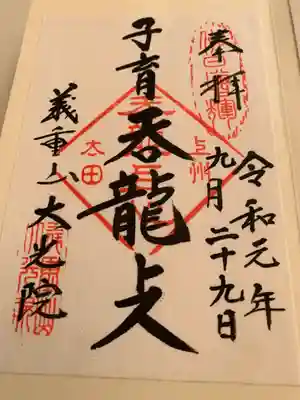 奉拝
令和元年
九月二十九日
上州
子育呑龍上人
太田
義重山大光院